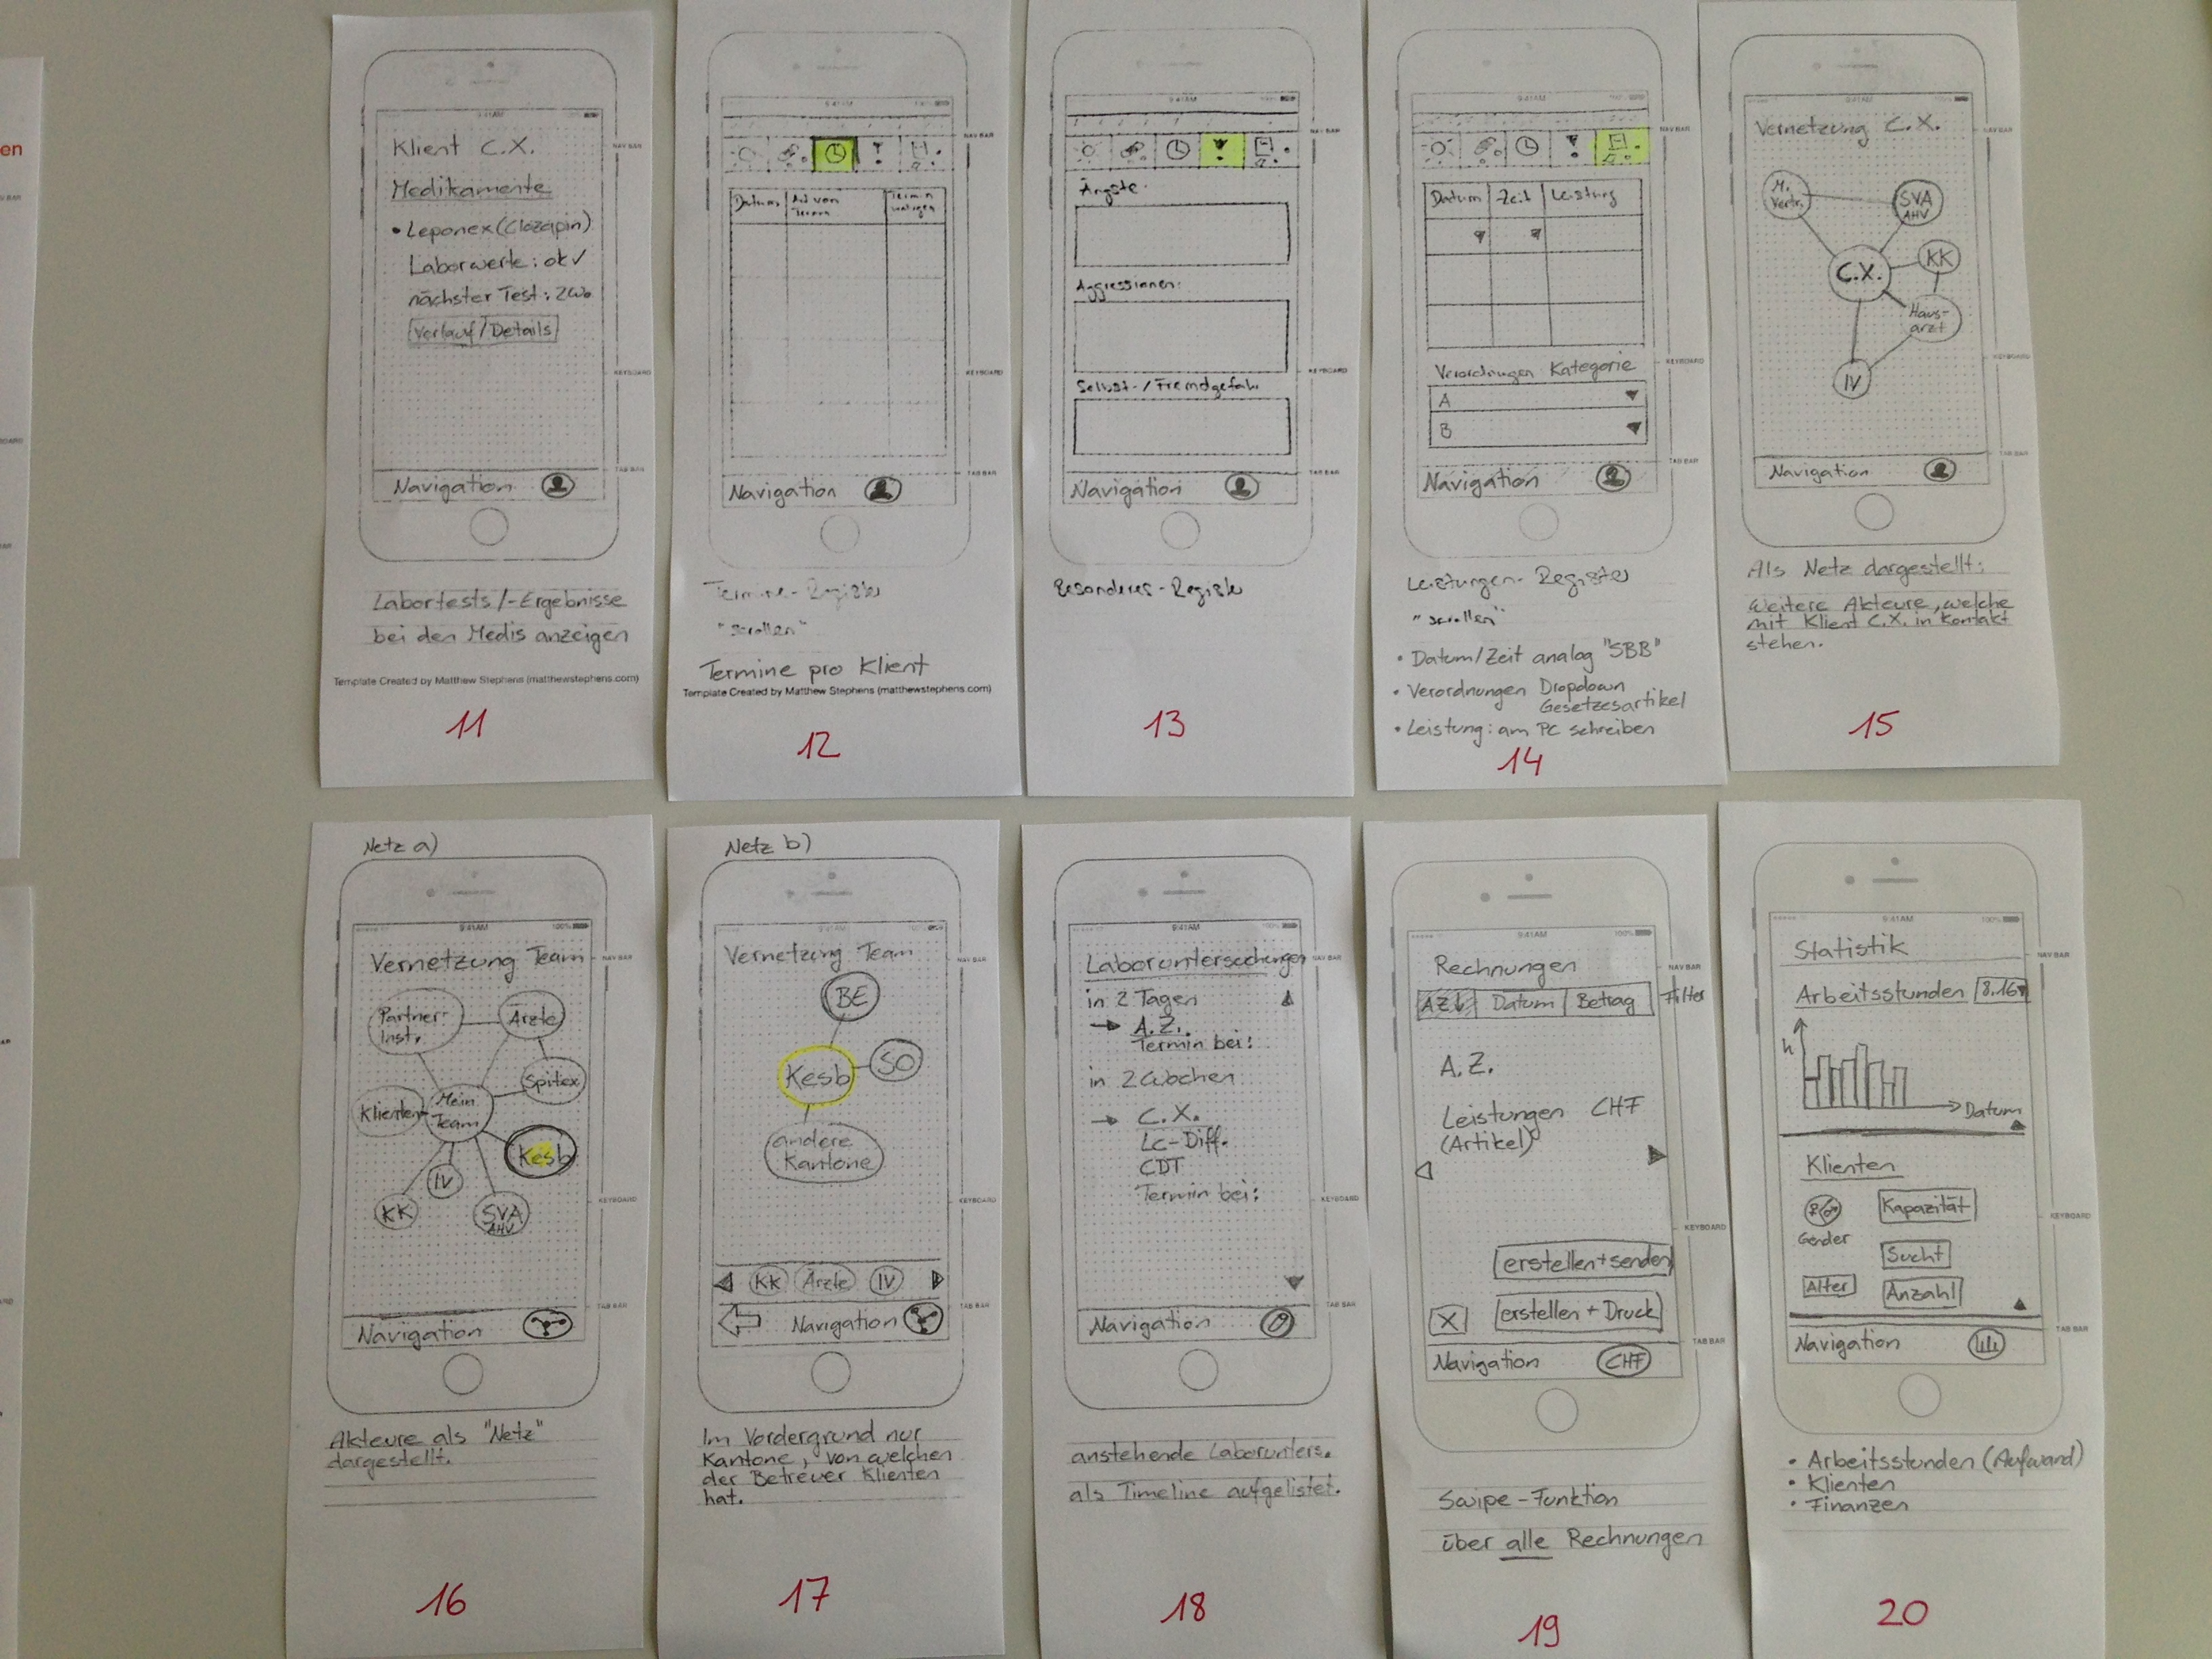 en
9:41AM
Klient C.X.
NAV BAR
Medikamente
• Leponex (Clozapin)
Laborwerte: ok ✓
nächster Test: 2Wo
Verlauf/Details
KEYBOARD
TAB BAR
Navigation
Labortests/-Ergebnisse
bei den Medis anzeigen
Template Created by Matthew Stephens (matthewstephens.com)
11
9:41AM
NAV BAR
Datum
Art von
Termin
Termin
KEYBOARD
TAB BAR
Navigation
Termine-Register
"scrollen"
Termine pro Klient
Template Created by Matthew Stephens (matthewstephens.com)
12
9:41AM
NAV BAR
Ängste:
Aggressionen:
KEYBOARD
Selbst-/Fremdgefahr
TAB BAR
Navigation
Besonderes-Register
13
9:41AM
NAV BAR
Datum Zeit Leistung
KEYBOARD
Verordnungen Kategorie
A
B
TAB BAR
Navigation
Leistungen-Register
"scrollen"
• Datum/Zeit analog "SBB"
• Verordnungen Dropdown
Gesetzesartikel
• Leistung: am PC schreiben
14
9:41AM
100%
Vernetzung C.X.
NAV BAR
M.
Vertr.
SVA
AHV
C.X.
KK
Haus-
arzt
IV
KEYBOARD
TAB BAR
Navigation
Als Netz dargestellt:
weitere Akteure, welche
mit Klient C.X. in Kontakt
stehen.
15
Netz a)
9:41AM
100%
Vernetzung Team
NAV BAR
Partner-
Inst.
Ärzte
Spitex
Klienten
Mein
Team
Kesb
IV
KK
SVA
AHV
KEYBOARD
TAB BAR
Navigation
Akteure als "Netz"
dargestellt.
16
Netz b)
9:41AM
Vernetzung Team
NAV BAR
BE
Kesb
SO
andere
Kantone
KEYBOARD
KK Ärzte IV
TAB BAR
Navigation
Im Vordergrund nur
Kantone, von welchen
der Betreuer Klienten
hat.
17
9:41AM
100%
Laboruntersuchungen
NAV BAR
in 2 Tagen
→ A.Z.
Termin bei:
in 2 Wochen
→ C.X.
Lc-Diff.
CDT
Termin bei:
KEYBOARD
TAB BAR
Navigation
anstehende Laborunters.
als Timeline aufgelistet.
18
9:41AM
100%
Rechnungen
NAV BAR
AZ↓ Datum Betrag Filter
A.Z.
Leistungen CHF
(Artikel)
KEYBOARD
erstellen+senden
X erstellen + Druck
TAB BAR
Navigation CHF
Swipe-Funktion
über alle Rechnungen
19
9:41AM
100%
Statistik
NAV BAR
Arbeitsstunden 8.16
h
Datum
Klienten
Gender
Kapazität
KEYBOARD
Sucht
Alter
Anzahl
TAB BAR
Navigation
• Arbeitsstunden (Aufwand)
• Klienten
• Finanzen
20